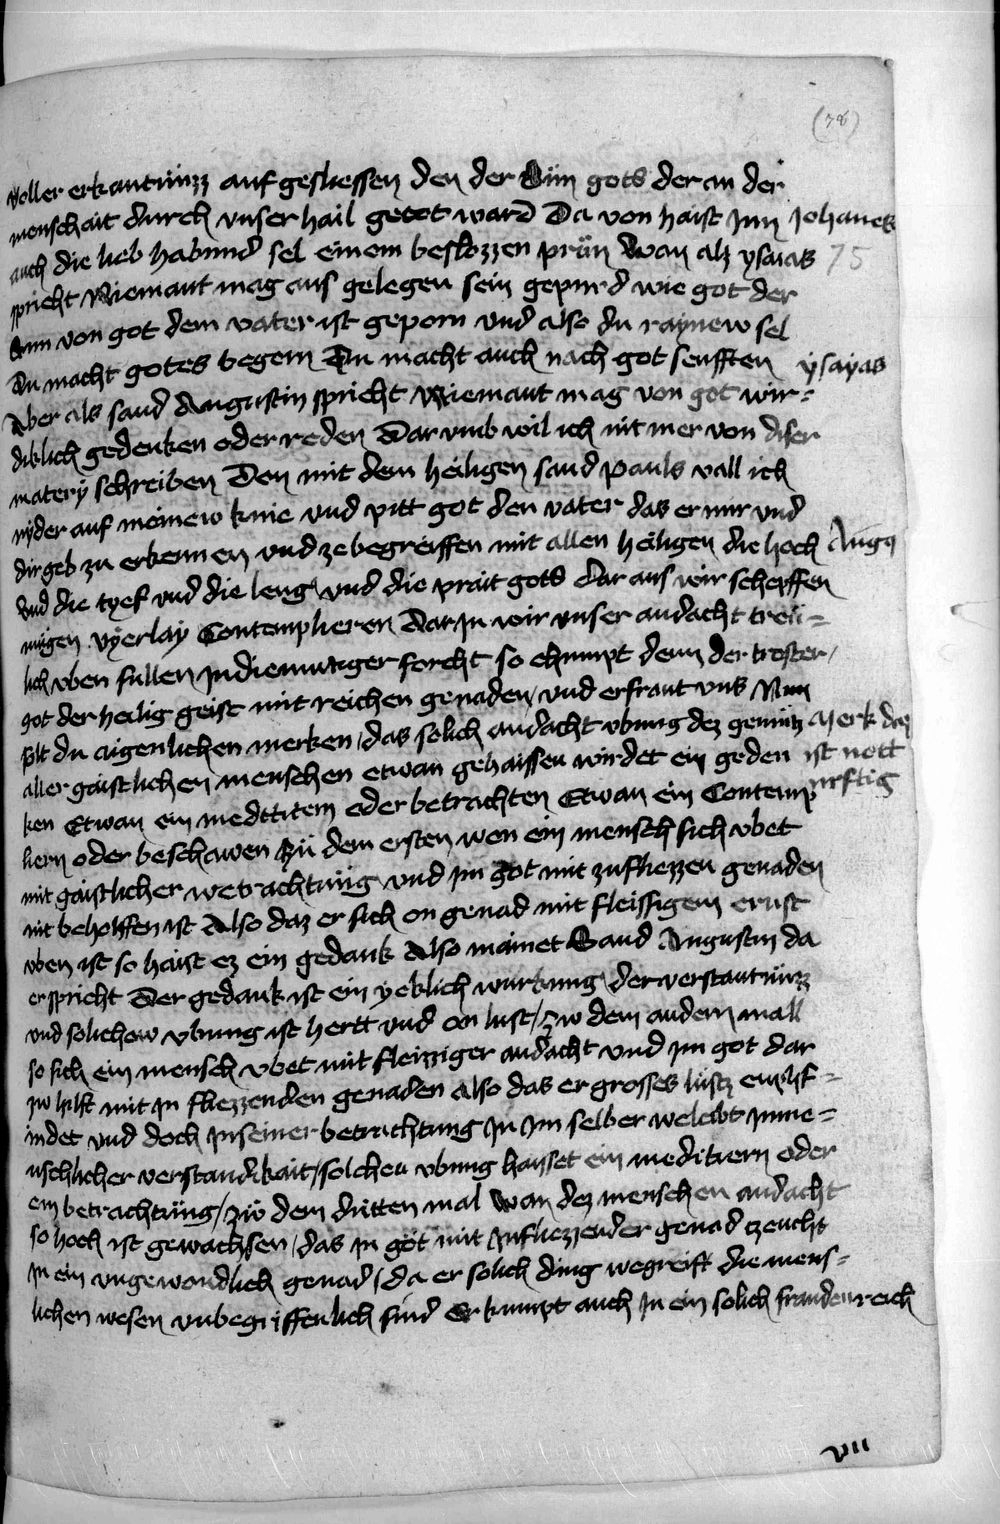 (78)
voller erkantnüzz auf gesliessen den der Sün gots der an der
menschait durch vnser hail getot ward Da von haist Jnn Johanes
auch die lieb habund sel einem beslozzen prün wan alz ysaias 75
spricht Niemant mag aus gelegen sein gepurd wie got der
Sun von got dem vater ist geporn vnd also du raynew sel
Du macht gotes begern Du macht auch nach got seufften ysayas
Aber als sand Augustin spricht Niemant mag von got wir=
diklich gedenken oder reden Dar vmb wil ich nit mer von diser
matery schreiben Den mit dem heiligen sand pauls vall ich
nyder auf meinew knie vnd pitt got den vater das er mir vnd
dir geb zu erkennen vnd ze begreiffen mit allen heiligen die hoch Aug9
vnd die tyef vnd die leng vnd die prait gots dar aus wir schepffen
mügen vyerlay Contemplieren Dar Jn wir vnser andacht treü=
lich vben süllen Jn diemutiger forcht so chumpt denn der troster /
got der heilig geist mit reichen genaden / vnd erfraut vns Nun
solt du aigenlichen merken / das solich andacht vbung dez gemütz Merk daz
aller gaistlichen menschen etwan gehaissen wirdet ein geden ist nott
ken Etwan ein meditirn oder betrachten Etwan ein Contemp urftig
liern oder beschawen Zü dem ersten wen ein mensch sich vbet
mit gaistlicher wetrachtüng vnd im got mit zufliezzen genaden
nit beholffen ist Also daz er sich on genad mit fleissigem ernst
vben ist so haist ez ein gedank Also mainet Sand Augustin da
er spricht Der gedank ist ein yeklich würkung der verstantnüzz
vnd solichew vbung ist hertt vnd on lust / zw dem andern mall
so sich ein mensch vbet mit fleizziger andacht vnd im got dar
zw hilft mit in fliezzenden genaden also das er grosses lüstz enphf=
indet vnd doch in seiner betrachtung Jn im selber weleibt inne=
nschlicher verstandikait / solchew vbung haisset ein meditiern oder
ein betrachtüng / zw dem dritten mal wan dez menschen andacht
so hoch ist gewachsen / das in got mit Jnfliezzender genad tzeucht
in ein vngewondlich genad / da er solich ding wegreift die mens=
lichen wesen vnbegriffenlich sind Er kumpt auch Jn ein solich fraudenreich
vii